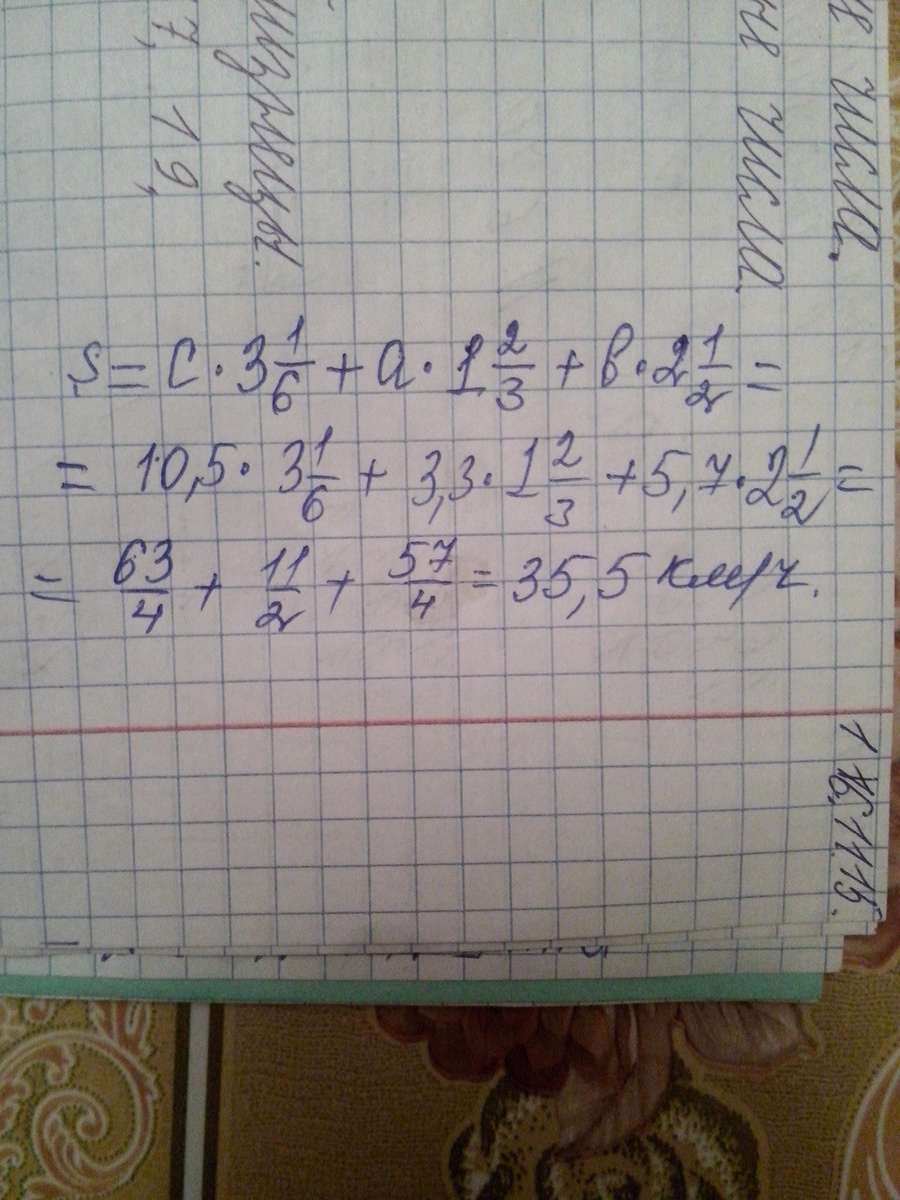 S = c · 3 1/6 + a · 1 2/3 + b · 2 1/2 =
= 10,5 · 3 1/6 + 3,3 · 1 2/3 + 5,7 · 2 1/2 =
= 63/4 + 11/2 + 57/4 = 35,5 км/ч.
числа.
числа.
7, 19,